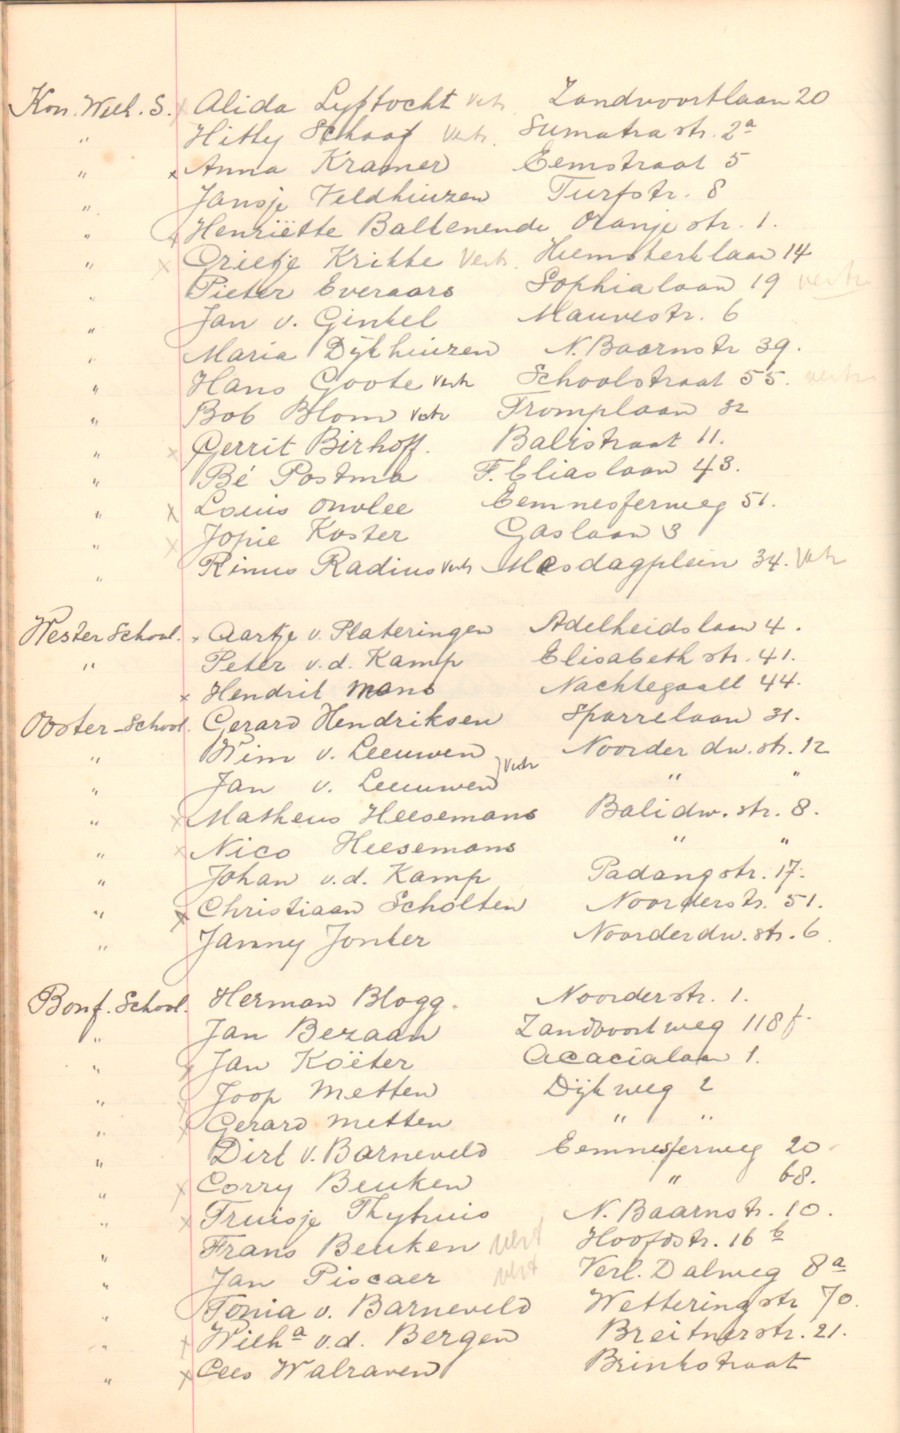 Kon. Wilh. S. x Alida Lyftocht vertr. Zandvoortlaan 20
" Hitty Schaaf Vertr. Sumatra str. 2a
" x Anna Kramer Eemstraat 5
" Jansje Veldhuizen Turfstr. 8
" x Henriëtte Baltenende Oranje str. 1.
" x Grietje Krikke Vertr. Hiemsterklaan 14
" Pieter Everaars Sophialaan 19 vertr
" Jan v. Ginkel Mauvestr. 6
" Maria Dijkhuizen N. Baarnstr 39.
" Hans Goote vertr Schoolstraat 55. vertr
" Bob Blom vertr Tromplaan 32
" x Gerrit Birhoff. Balistraat 11.
" Bé Postma F. Eliaslaan 43.
" x Louis Onvlee Eemnesserweg 51.
" x Jopie Koster Gaslaan 3
" Rinus Radius vertr Mesdagplein 34. Vertr
Wester School. x Aartje v. Plateringen Adelheidslaan 4.
" Peter v.d. Kamp Elisabeth str. 41.
x Hendrik Mans Nachtegaall 44.
Ooster-School. Gerard Hendriksen Sparrelaan 31.
" Wim v. Leeuwen Noorder dw. str. 12
" Jan v. Leeuwen } vertr " "
" x Matheus Heesemans Balidw. str. 8.
" x Nico Heesemans " "
" Johan v.d. Kamp Padangstr. 17.
" x Christiaan Scholten Noorderstr. 51.
" Janny Jonker Noorderdw. str. 6.
Bonf. School. Herman Blogg. Noorderstr. 1.
" Jan Bezaan Zandvoortweg 118f.
" x Jan Koëter Acacialaan 1.
" x Joop Metten Dijkweg 2
" x Gerard Metten " "
" Dirk v. Barneveld Eemnesserweg 20.
" x Corry Beuken " 68.
" x Truisje Thyhuis N. Baarnstr. 10.
" Frans Beuken vert Hoofdstr. 16 b
" Jan Piscaer vert Verl. Dalweg 8a
" Tonia v. Barneveld Wetteringstr 70.
" x Wilha v.d. Bergen Breitnerstr. 21.
" x Cees Walraven Brinkstraat